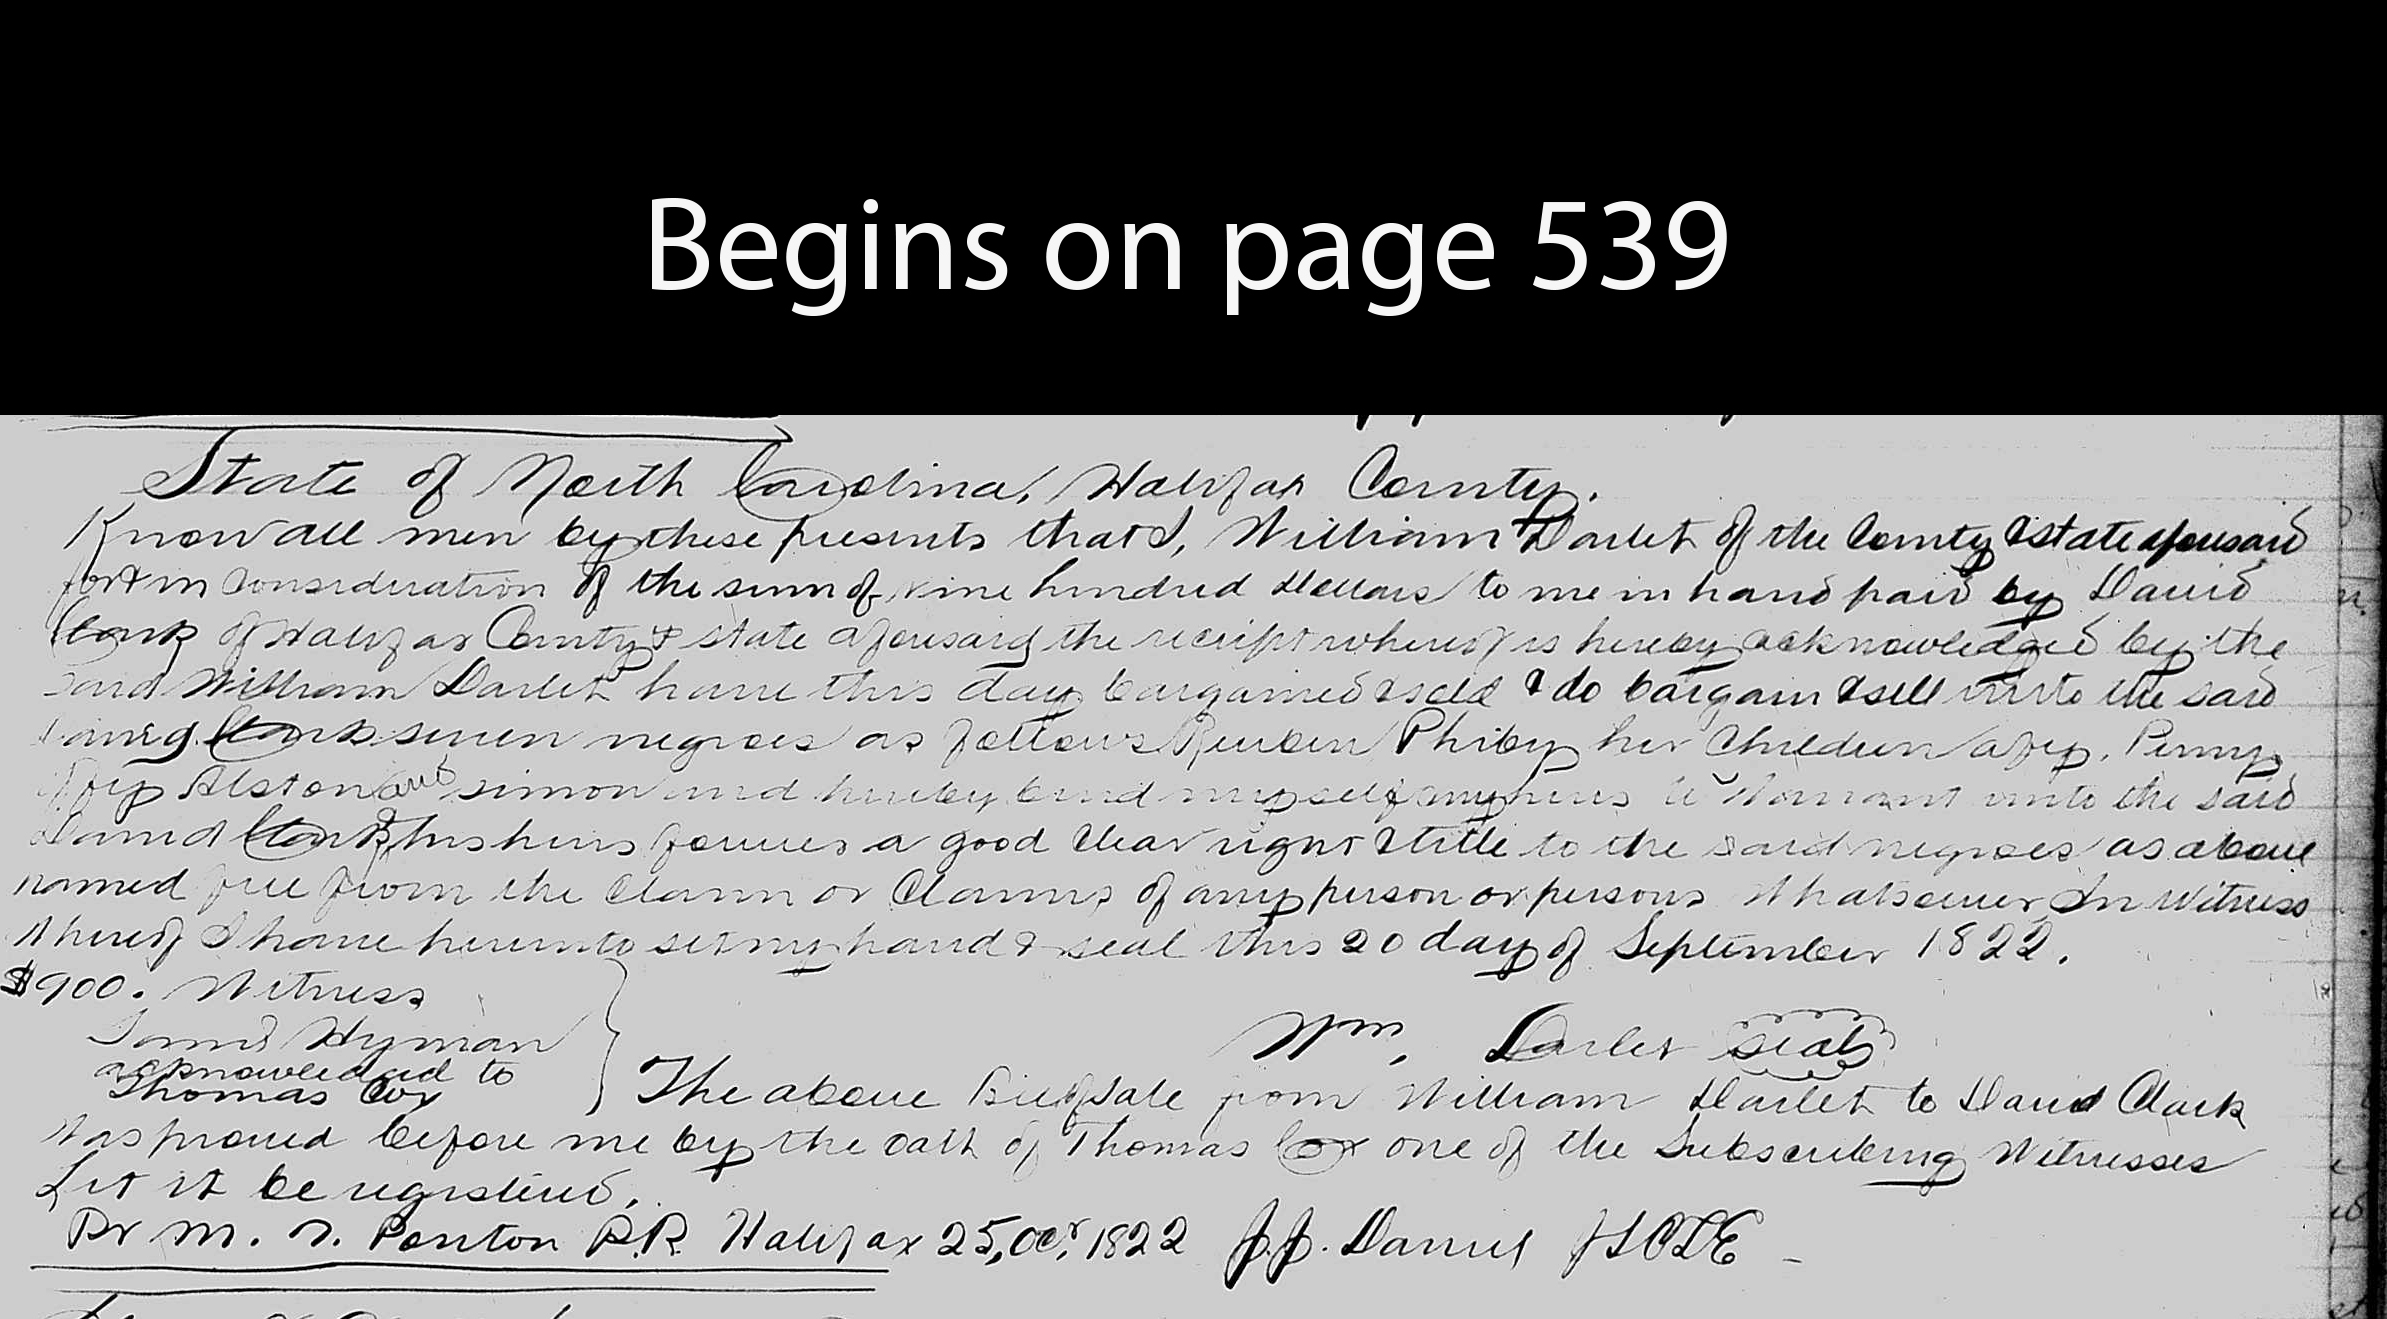 Begins on page 539
State of North Carolina, Halifax County.
Know all men by these presents that I, William Darlet of the County & state aforesaid
for & in Consideration of the sum of nine hundred Dollars to me in hand paid by David
Clark of Halifax County & state aforesaid the receipt whereof is hereby acknowledged by the
said William Darlet have this day bargained & sold & do bargain & sell unto the said
David Clark seven negroes as follows Reuben Phiby her Children Penny
Alston and simon and hereby bind myself & my heirs to Warrant unto the said
David Clark, his heirs forever a good Clear right & title to the said negroes as above
named free from the Claim or Claims of any person or persons Whatsoever In Witness
Whereof I have hereunto set my hand & seal this 20 day of September 1822.
$900. Witness
Hyman
acknowledged to
Thomas Cox
Wm. Darlet seal
The above Bill of Sale from William Darlet to David Clark
Was proved before me by the oath of Thomas Cox one of the Subscribing Witnesses
Let it be registered.
Pr M. Ponton P.R. Halifax 25, Octr, 1822 J.J. Daniel JSCLE